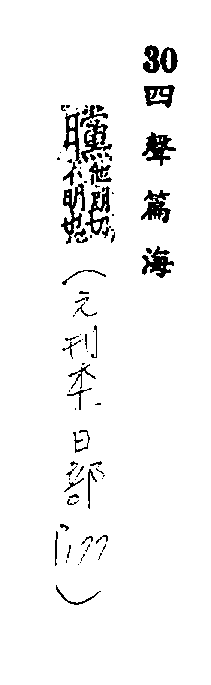 30 四聲篇海
曭 他朗切 不明
(元刊本 日部 )